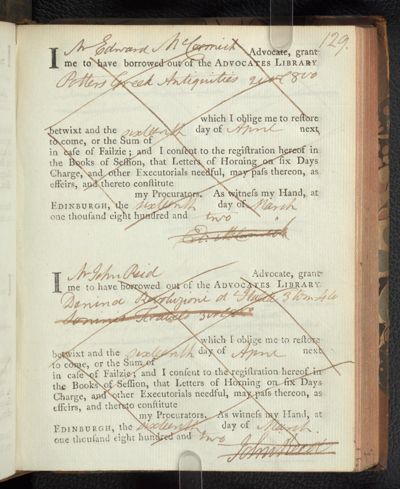 129.
I Mr Edward McCormick Advocate, grant
me to have borrowed out of the ADVOCATES LIBRARY
Potters Greek Antiquities 2 vol 8vo
which I oblige me to reſtore
betwixt and the sixteenth day of April next
to come, or the Sum of
in caſe of Failzie; and I conſent to the regiſtration hereof in
the Books of Seſſion, that Letters of Horning on ſix Days
Charge, and other Executorials needful, may paſs thereon, as
effeirs, and thereto conſtitute
my Procurators. As witneſs my Hand, at
EDINBURGH, the sixteenth day of March
one thouſand eight hundred and two
Ed. McCormick
I Mr John Reid Advocate, grant
me to have borrowed out of the ADVOCATES LIBRARY
Denina Rivoluzione d' Italia 3 tom 4to
which I oblige me to reſtore
betwixt and the sixteenth day of April next
to come, or the Sum of
in caſe of Failzie; and I conſent to the regiſtration hereof in
the Books of Seſſion, that Letters of Horning on ſix Days
Charge, and other Executorials needful, may paſs thereon, as
effeirs, and thereto conſtitute
my Procurators. As witneſs my Hand, at
EDINBURGH, the sixteenth day of March.
one thouſand eight hundred and two
John Reid